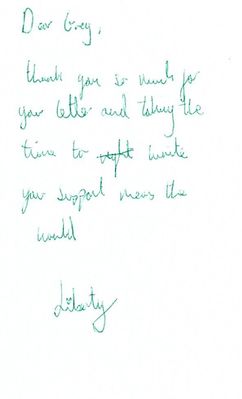 Dear Greg,
thank you so much for
your letter and taking the
time to write
your support means the
world
Liberty